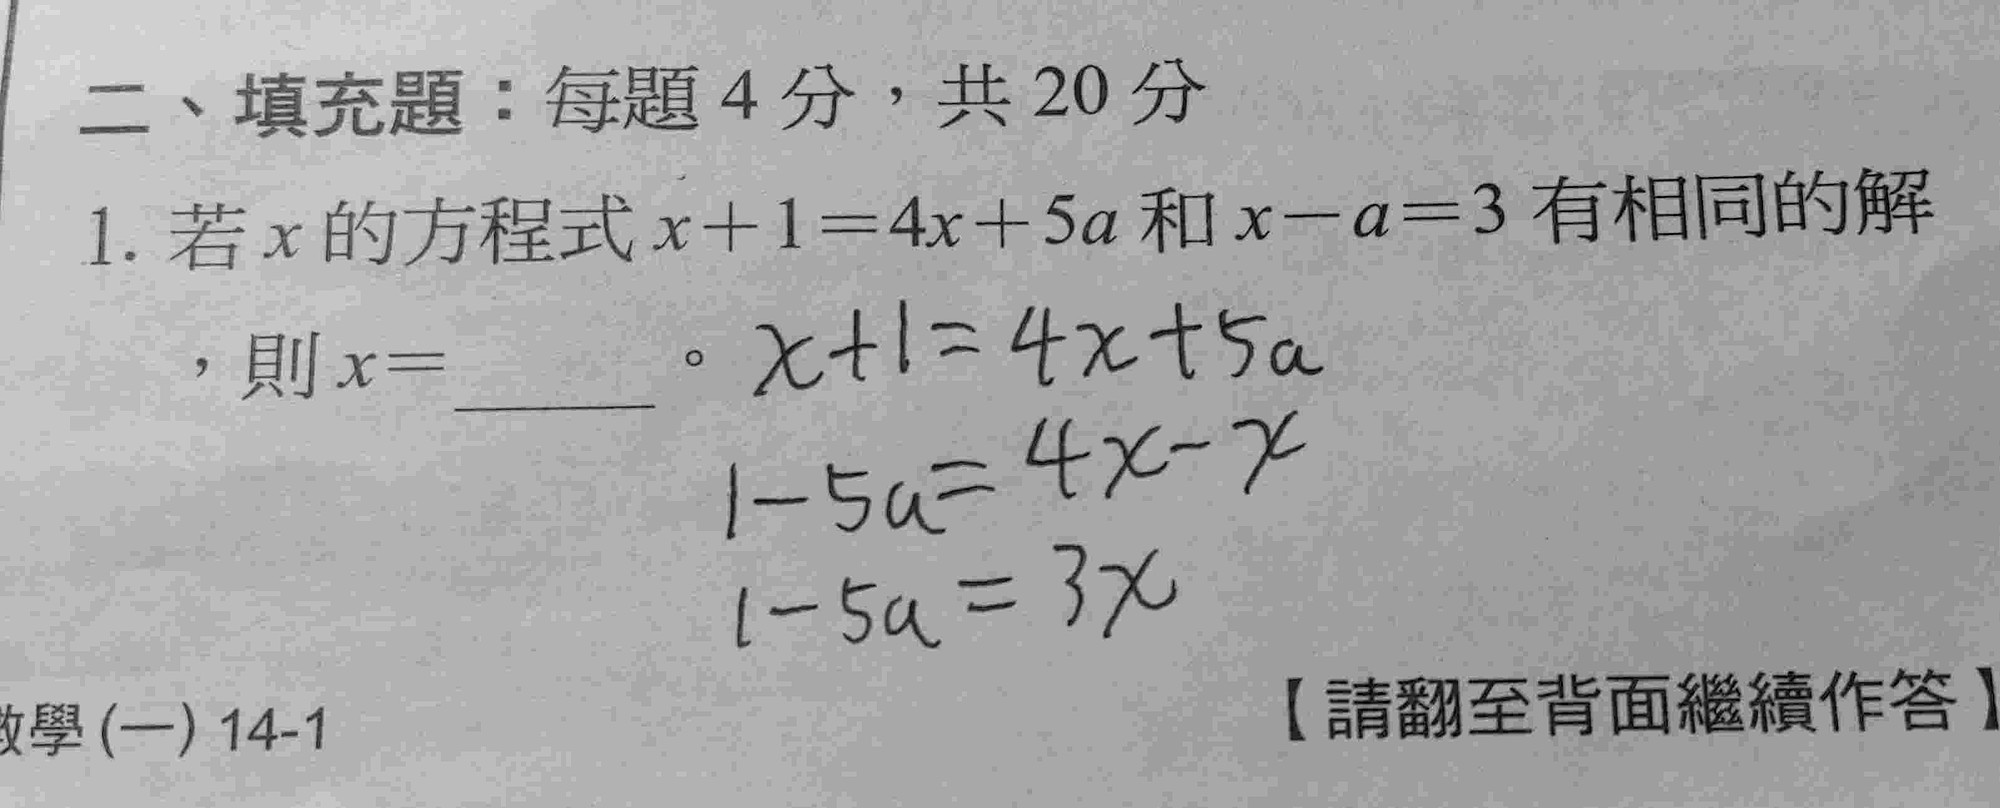 二、填充題：每題 4 分，共 20 分
1. 若 x 的方程式 x＋1＝4x＋5a 和 x－a＝3 有相同的解
，則 x＝_____。
x+1=4x+5a
1-5a=4x-x
1-5a=3x
數學 (一) 14-1
【請翻至背面繼續作答】